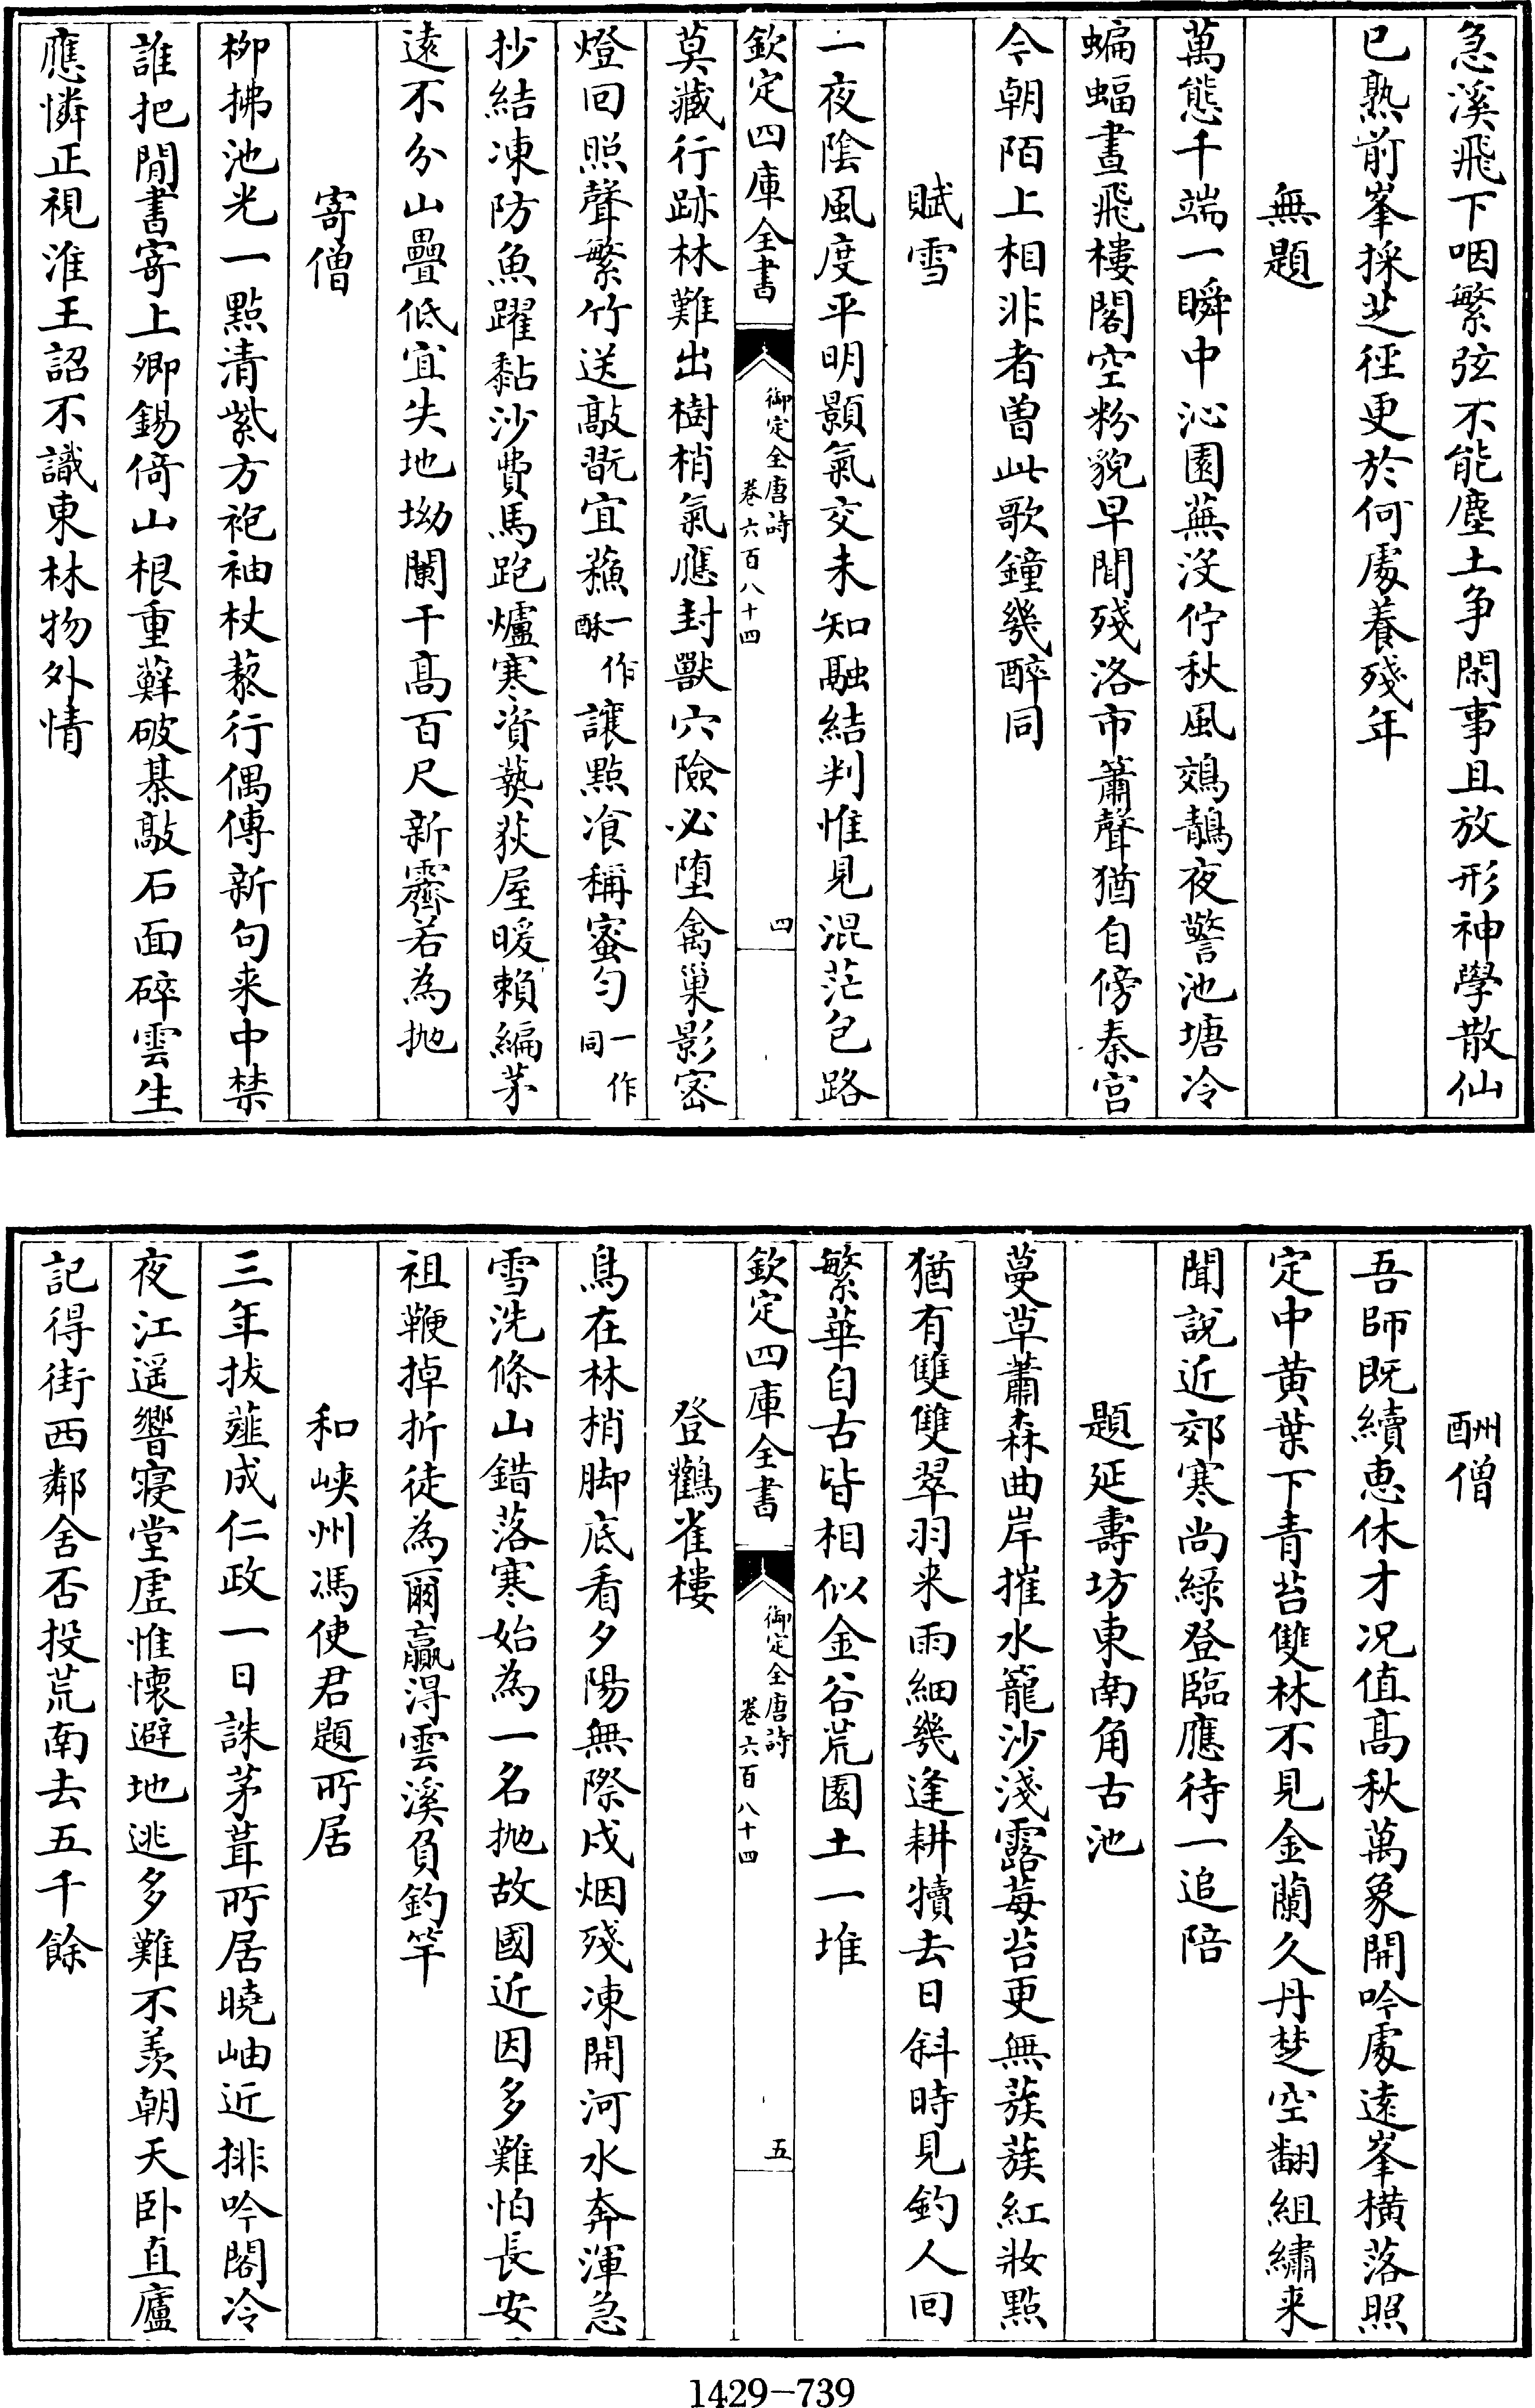 急溪飛下咽繁弦不能塵土争閑事且放形神學散仙
已熟前峯採芝徑更於何處養殘年
無題
萬態千端一瞬中沁園蕪沒佇秋風鵁鶄夜警池塘冷
蝙蝠晝飛樓閣空粉貌早聞殘洛市簫聲猶自傍秦宫
今朝陌上相非者曽此歌鐘幾醉同
賦雪
一夜隂風度平明顥氣交未知融結判惟見混茫包路
欽定四庫全書
御定全唐詩
卷六百八十四
四
莫藏行跡林難出樹梢氣應封獸穴險必墮禽巢影密
燈回照聲繁竹送敲翫宜蘓一作酥讓點飡稱蜜勻一作同
抄結凍防魚躍黏沙費馬跑爐寒資爇荻屋暖賴編茅
逺不分山疊低宜失地坳闌干髙百尺新霽若為抛
寄僧
栁拂池光一㸃清紫方袍袖杖藜行偶傳新句来中禁
誰把閒書寄上卿錫倚山根重蘚破棊敲石面碎雲生
應憐正視淮王詔不識東林物外情
酬僧
吾師既續恵休才况值髙秋萬象開吟處逺峯横落照
定中黄葉下青苔雙林不見金蘭久丹楚空翻組繡来
聞說近郊寒尚緑登臨應待一追陪
題延壽坊東南角古池
蔓草蕭森曲岸摧水籠沙淺露莓苔更無蔟蔟紅妝㸃
猶有雙雙翠羽来雨細幾逢耕犢去日斜時見釣人回
繁華自古皆相似金谷荒園土一堆
欽定四庫全書
御定全唐詩
卷六百八十四
五
登鸛雀樓
鳥在林梢脚底看夕陽無際戍烟殘凍開河水奔渾急
雪洗條山錯落寒始為一名抛故國近因多難怕長安
祖鞭掉折徒為爾贏得雲溪負釣竿
和峽州馮使君題所居
三年拔薤成仁政一日誅茅葺所居曉岫近排吟閣冷
夜江遥響寢堂虛惟懷避地逃多難不羨朝天卧直廬
記得街西鄰舍否投荒南去五千餘
1429-739